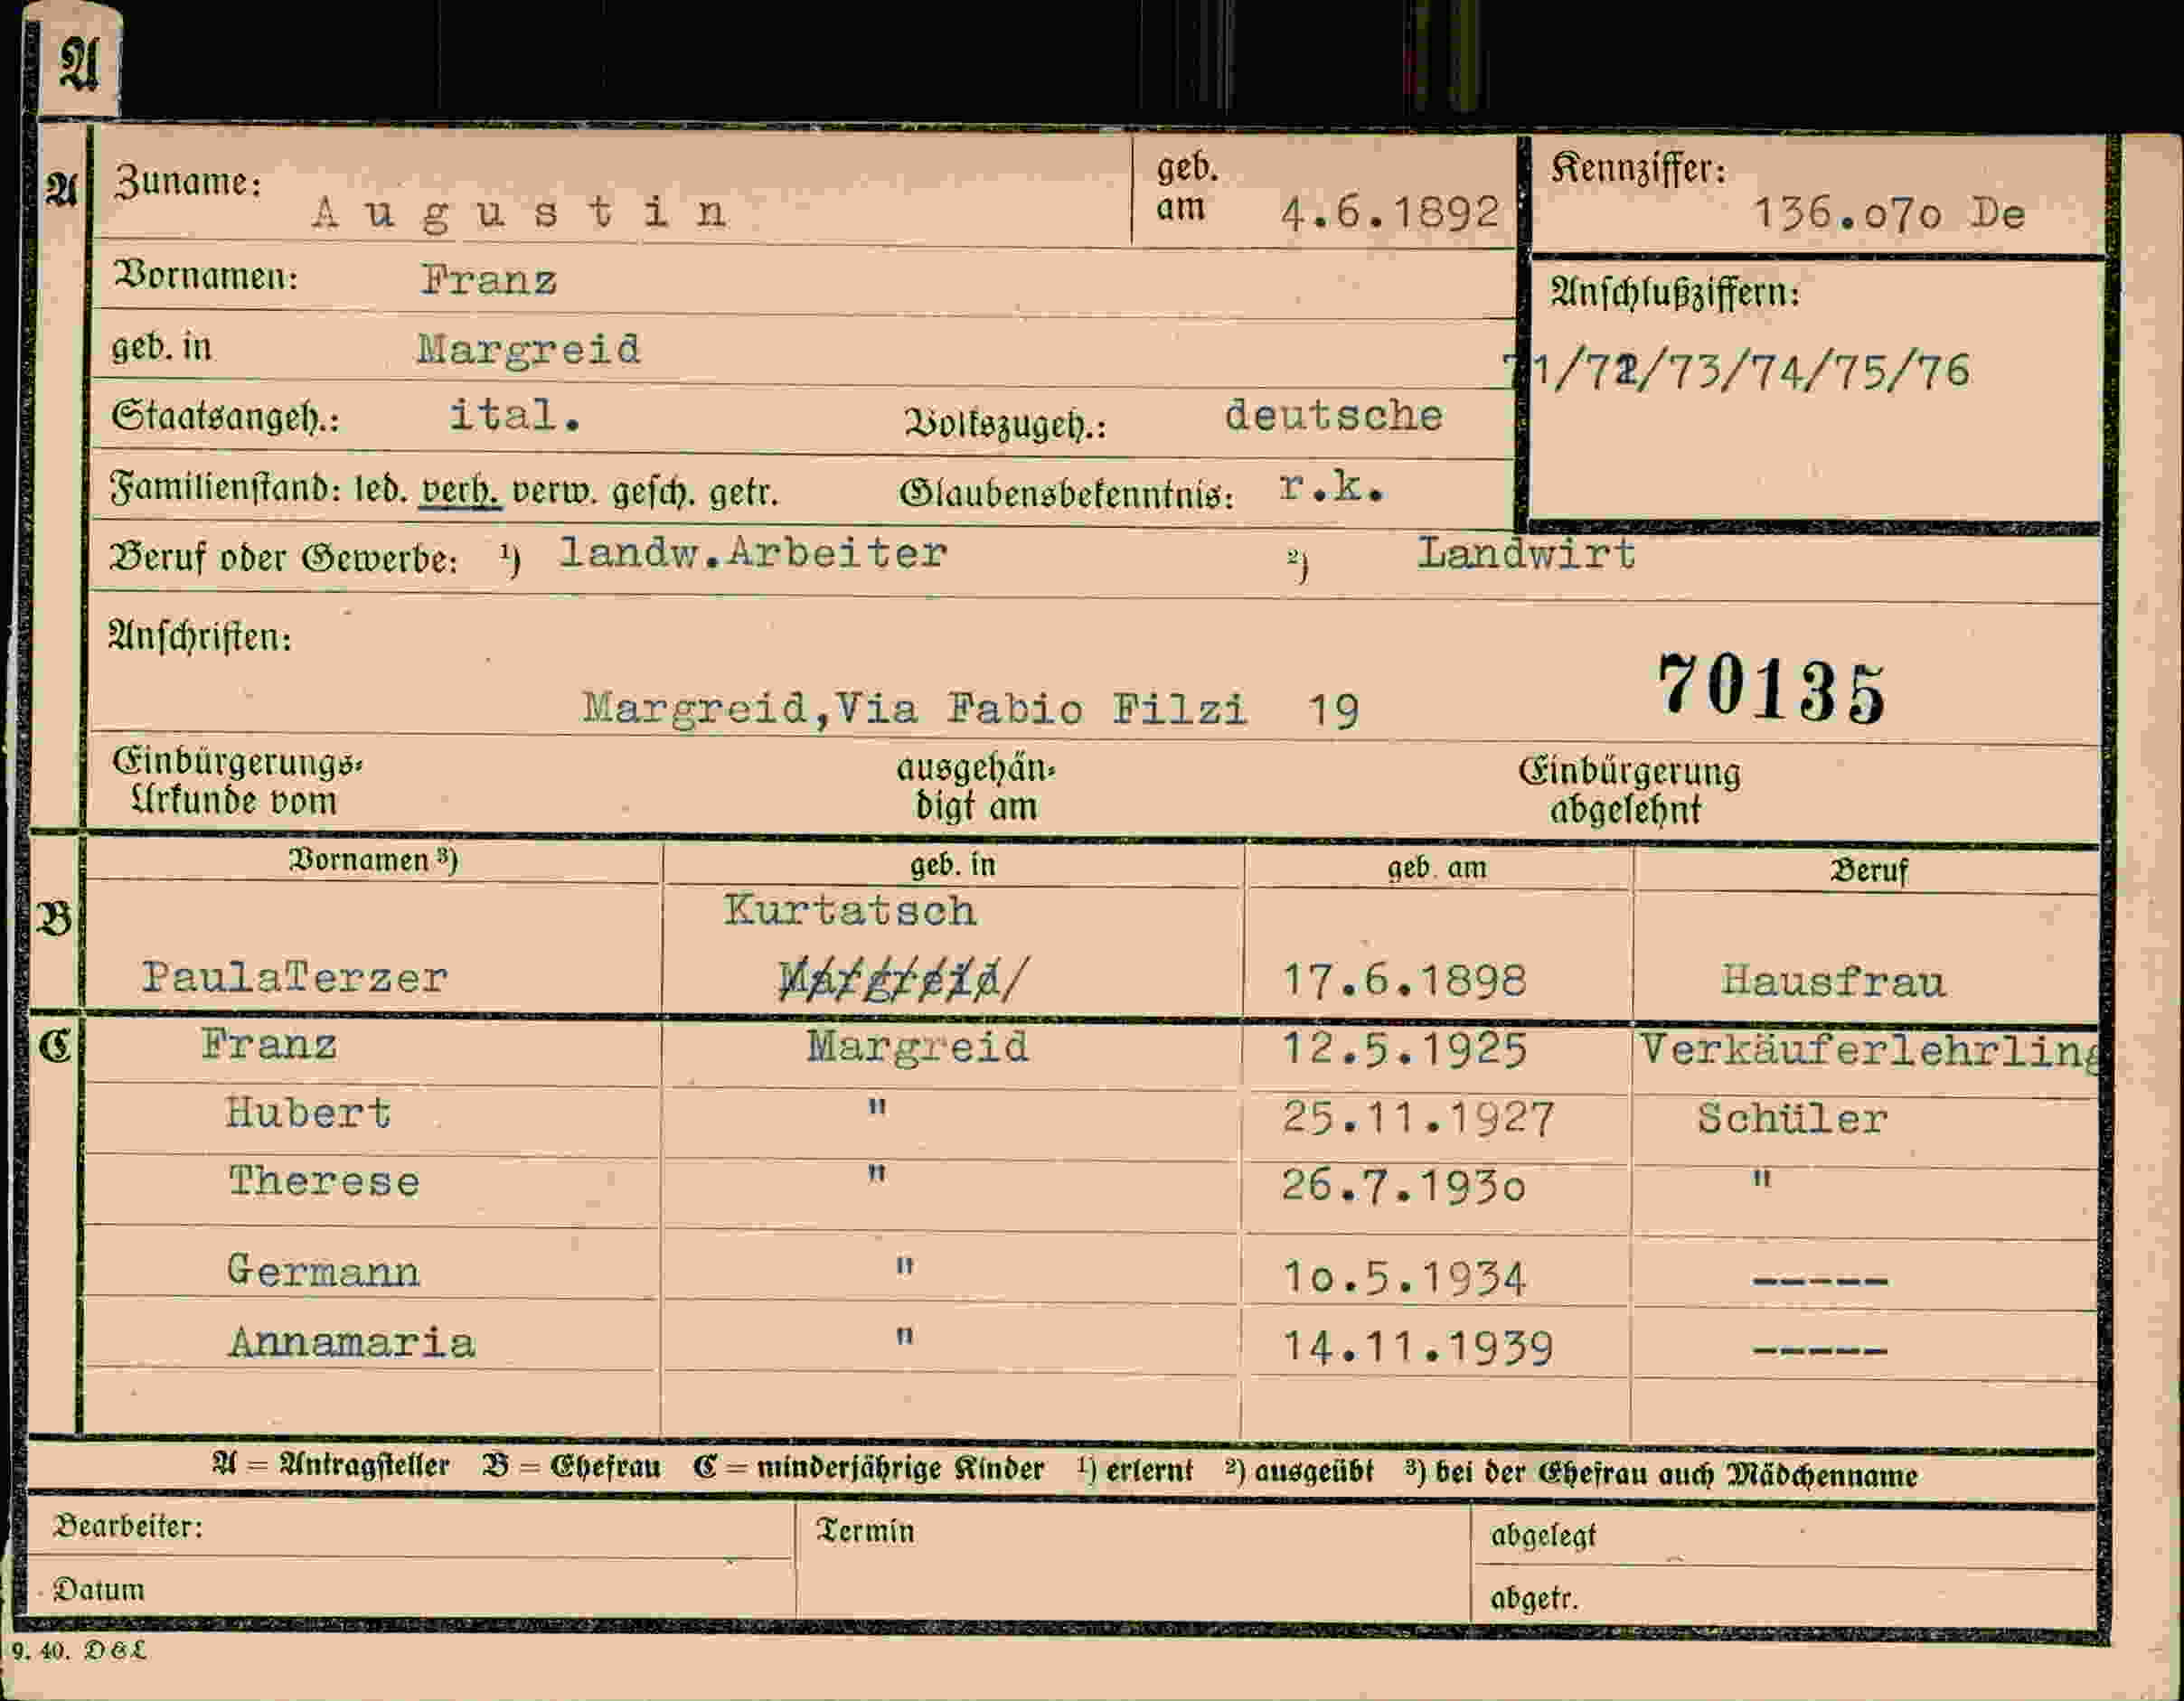 A
A Zuname: Augustin geb. am 4.6.1892 Kennziffer: 136.o7o De
Vornamen: Franz Anschlußziffern:
geb. in Margreid 71/72/73/74/75/76
Staatsangeh.: ital. Volkszugeh.: deutsche
Familienstand: led. verh. verw. gesch. getr. Glaubensbekenntnis: r.k.
Beruf oder Gewerbe: ¹) landw.Arbeiter ²) Landwirt
Anschriften:
70135
Margreid,Via Fabio Filzi 19
Einbürgerungs- ausgehän- Einbürgerung
Urkunde vom digt am abgelehnt
Vornamen ³) geb. in geb. am Beruf
B Kurtatsch
PaulaTerzer Margreid/ 17.6.1898 Hausfrau
C Franz Margreid 12.5.1925 Verkäuferlehrling
Hubert " 25.11.1927 Schüler
Therese " 26.7.193o "
Germann " 1o.5.1934 -----
Annamaria " 14.11.1939 -----
A = Antragsteller B = Ehefrau C = minderjährige Kinder ¹) erlernt ²) ausgeübt ³) bei der Ehefrau auch Mädchenname
Bearbeiter: Termin abgelegt
Datum abgetr.
9. 40. D&L